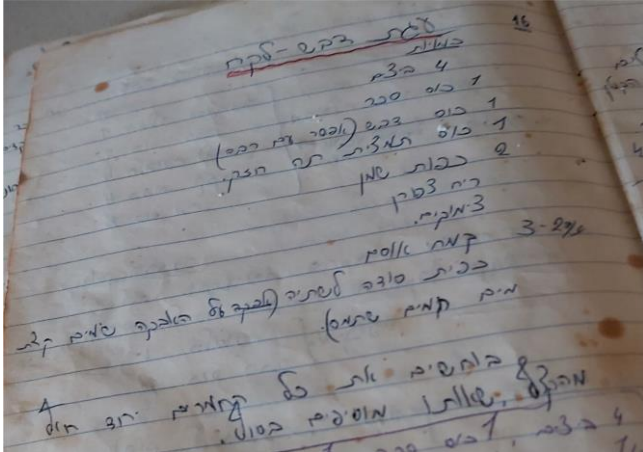 16
עגת דבש-לקח
כמויות
4 ביצים
1 כוס סכר
1 כוס דבש (אפשר עם רבה)
1 כוס תמצית תה חזק.
2 כפות שמן
ריח צטרון
צימוקים.
3-2¾ קמח אוסם
כפית סודה לשתיה (אבקה על האבקה שמים קצת
מים חמים שתמס).
בוחשים את כל החמרים יחד חוץ
מהקצף שאותו מוסיפים בסוף.
4 ביצים, 1 כוס סכר